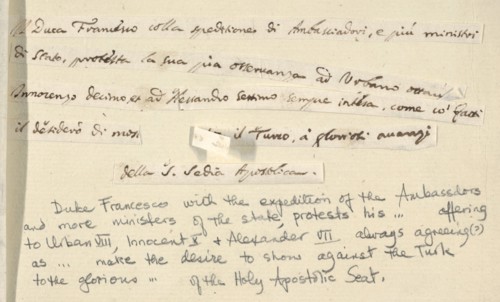 Il Duca Francesco colla speditione di Ambasciadori, e più ministri
di Stato, protesta la sua pia osservanza ad Urbano
Innocenzo decimo, et ad Alessandro settimo sempre intesa, come co' fatti
il desiderò di mos il Turco, à gloriosi
della S. Sedia Apostolica.
Duke Francesco with the expedition of the Ambassadors
and more ministers of the state, protests his ... offering
to Urban VIII, Innocent X & Alexander VII always agreeing(?)
as ... make the desire to show against the Turk
to the glorious ... of the Holy Apostolic Seat.